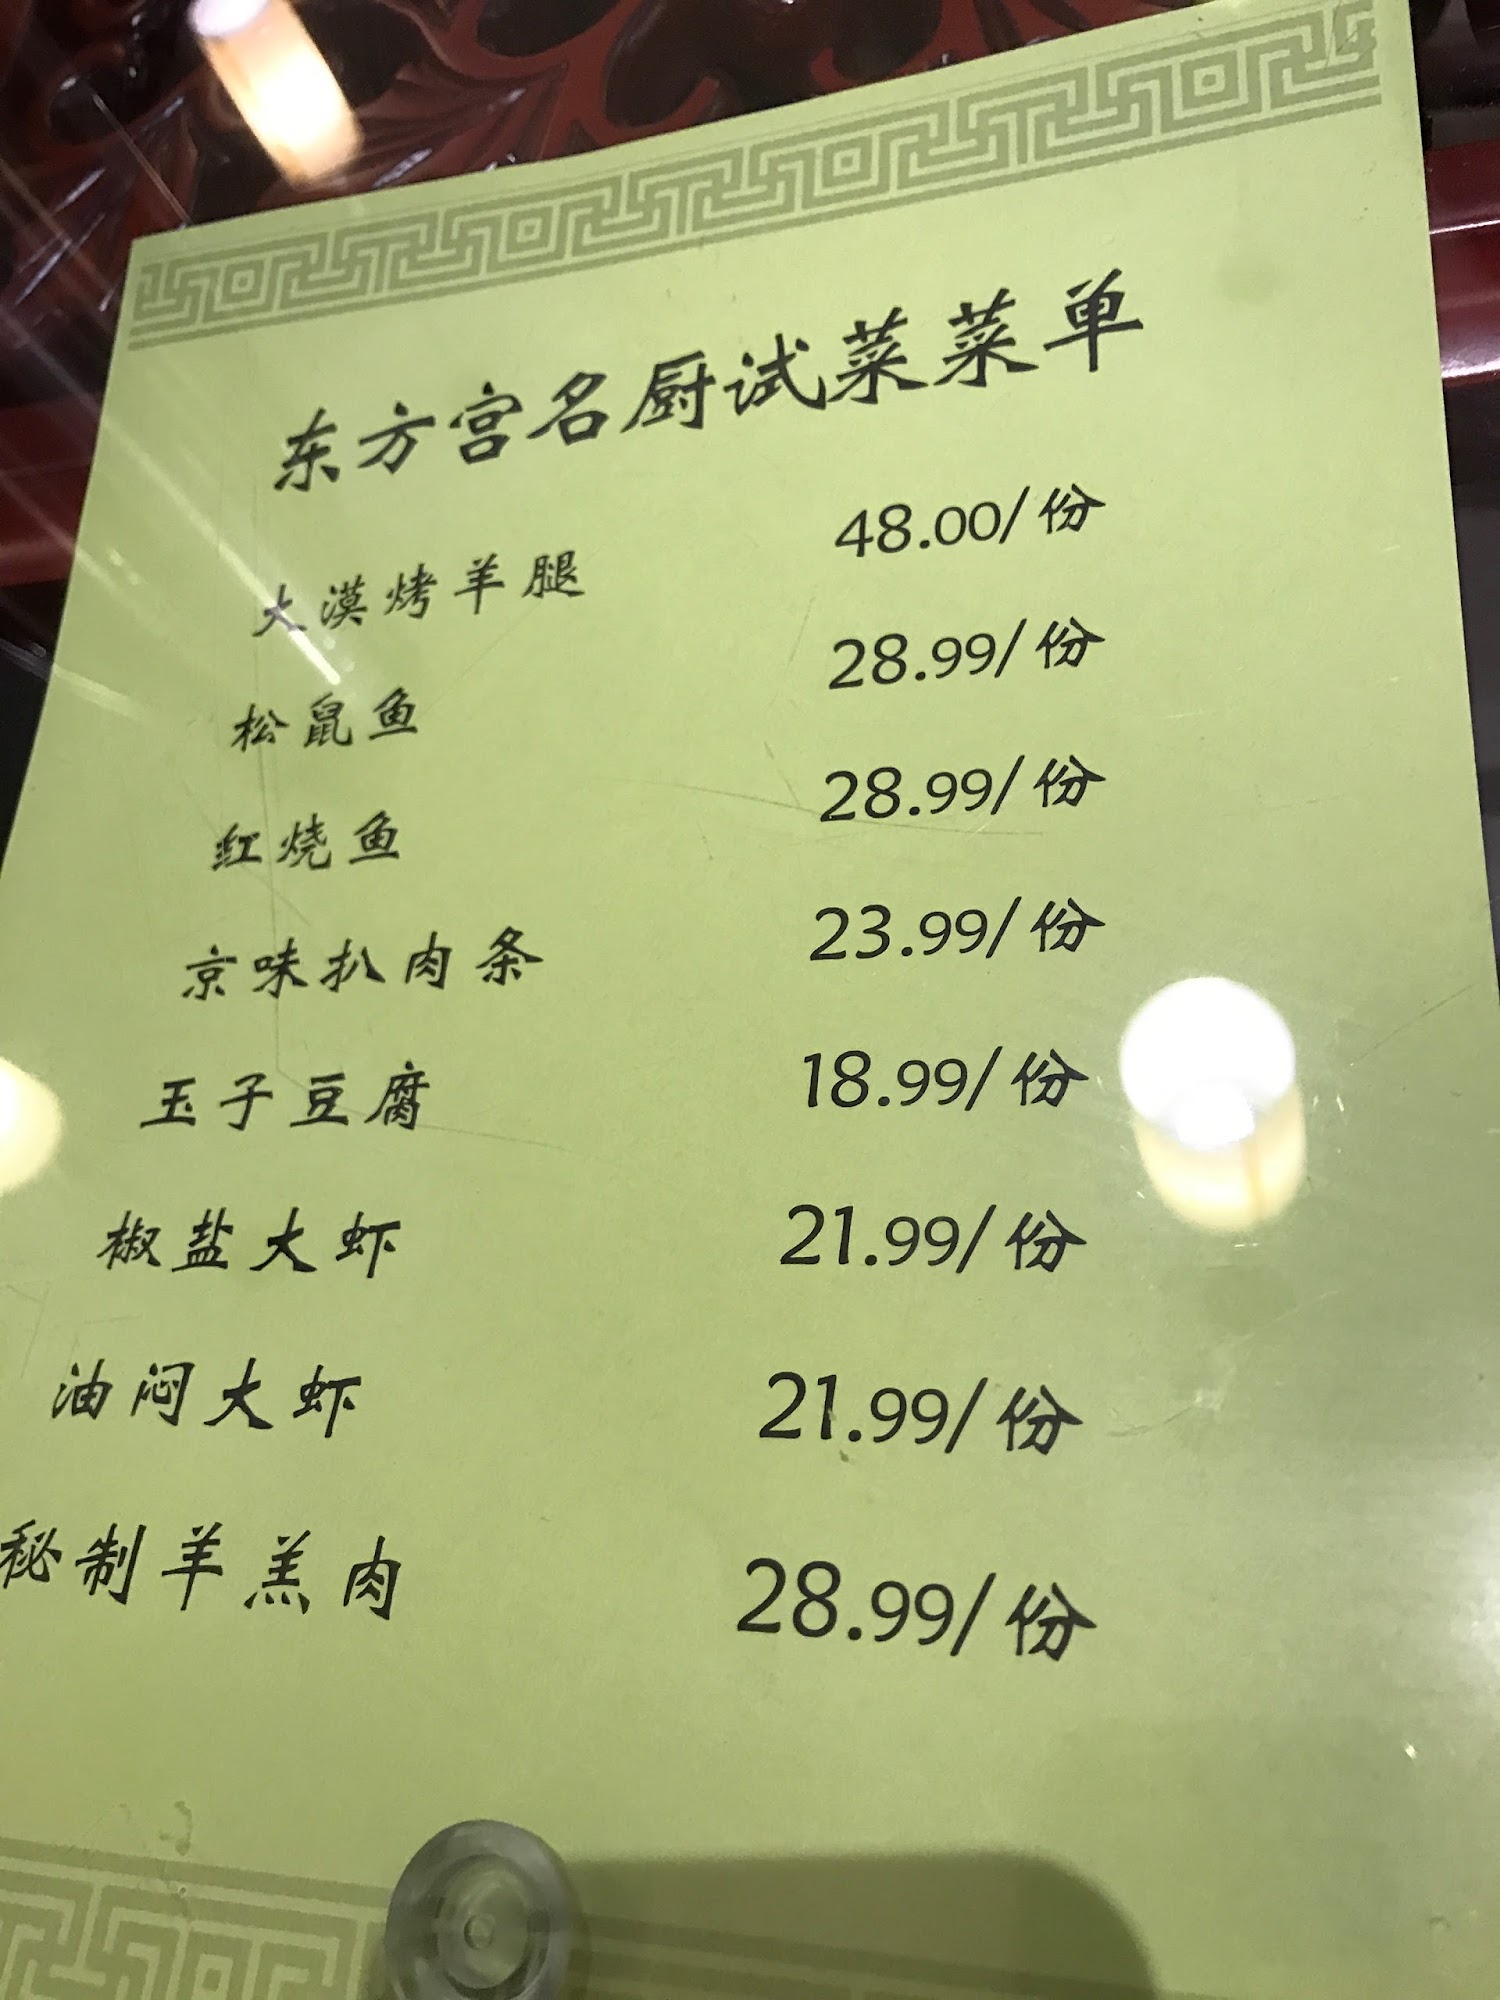 东方宫名厨试菜菜单
大漠烤羊腿 48.00/份
松鼠鱼 28.99/份
红烧鱼 28.99/份
京味扒肉条 23.99/份
玉子豆腐 18.99/份
椒盐大虾 21.99/份
油闷大虾 21.99/份
秘制羊羔肉 28.99/份